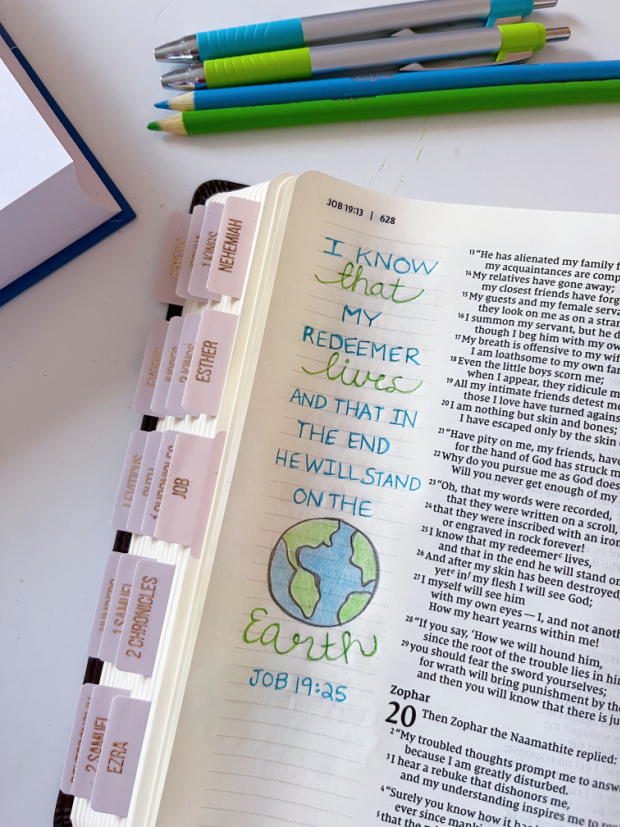 JOB 19:13 | 628
1 KINGS
NEHEMIAH
2 KINGS
ESTHER
LEVITICUS
JOB
1 SAMUEL
2 CHRONICLES
2 SAMUEL
EZRA
I KNOW
that
MY
REDEEMER
lives
AND THAT IN
THE END
HE WILL STAND
ON THE
Earth
JOB 19:25
13 “He has alienated my family
my acquaintances are
14 My relatives have gone away;
my closest friends have
15 My guests and my female
they look on me as on a
16 I summon my servant, but he
though I beg him with my
17 My breath is offensive to my
I am loathsome to my own
18 Even the little boys scorn me;
when I appear, they ridicule
19 All my intimate friends detest
those I love have turned
20 I am nothing but skin and bones;
I have escaped only by the skin
21 “Have pity on me, my friends,
for the hand of God has struck
22 Why do you pursue me as God
Will you never get enough of my
23 “Oh, that my words were recorded,
that they were written on a scroll,
24 that they were inscribed with an
or engraved in rock forever!
25 I know that my redeemer lives,
and that in the end he will stand
26 And after my skin has been destroyed,
yet in my flesh I will see God;
27 I myself will see him
with my own eyes — I, and not
How my heart yearns within me!
28 “If you say, ‘How we will hound him,
since the root of the trouble lies in
29 you should fear the sword yourselves;
for wrath will bring punishment by
and then you will know that there is
Zophar
20 Then Zophar the Naamathite replied:
2 “My troubled thoughts prompt me to
because I am greatly disturbed.
3 I hear a rebuke that dishonors me,
and my understanding inspires me to
4 “Surely you know how it has
ever since
5 that the